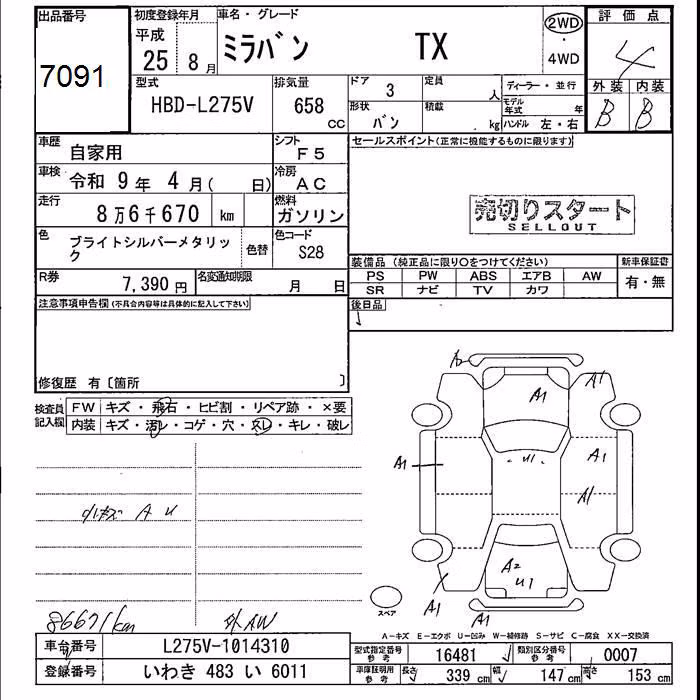 出品番号
7091
初度登録年月
平成
25年
8月
車名・グレード
ミラバン TX
2WD
・
4WD
評価点
4
外装 内装
B B
型式
HBD-L275V
排気量
658
cc
ドア 3
定員 人
形状
バン
積載 kg
ディーラー・並行
モデル年式 年
ハンドル 左・右
車歴
自家用
シフト
F5
車検
令和 9年 4月( 日)
冷房
AC
走行
8万6千670 km
燃料
ガソリン
色
ブライトシルバーメタリック
色替
色コード
S28
R券
7,390円
名変通知期限
月 日
セールスポイント(正常に機能するものに限ります)
売切りスタート
SELLOUT
装備品(純正品に限り○をつけてください)
PS PW ABS エアB AW
SR ナビ TV カワ
新車保証書
有・無
後日品
注意事項申告欄(不具合内容等は具体的に記入して下さい)
修復歴 有〔箇所 〕
検査員記入欄
FW キズ・飛石・ヒビ割・リペア跡・×要
内装 キズ・汚レ・コゲ・穴・スレ・キレ・破レ
小キズ A U
86671km
外AW
A2
A1
A1
A1
U1
A1
A1
A2
U1
A1
A1
スペア
A-キズ E-エクボ U-凹み W-補修跡 S-サビ C-腐食 XX-交換済
車台番号
L275V-1014310
型式指定番号
参考
16481
類別区分番号
参考
0007
登録番号
いわき 483 い 6011
車庫証明用
参考
長さ 339 cm
幅 147 cm
高さ 153 cm